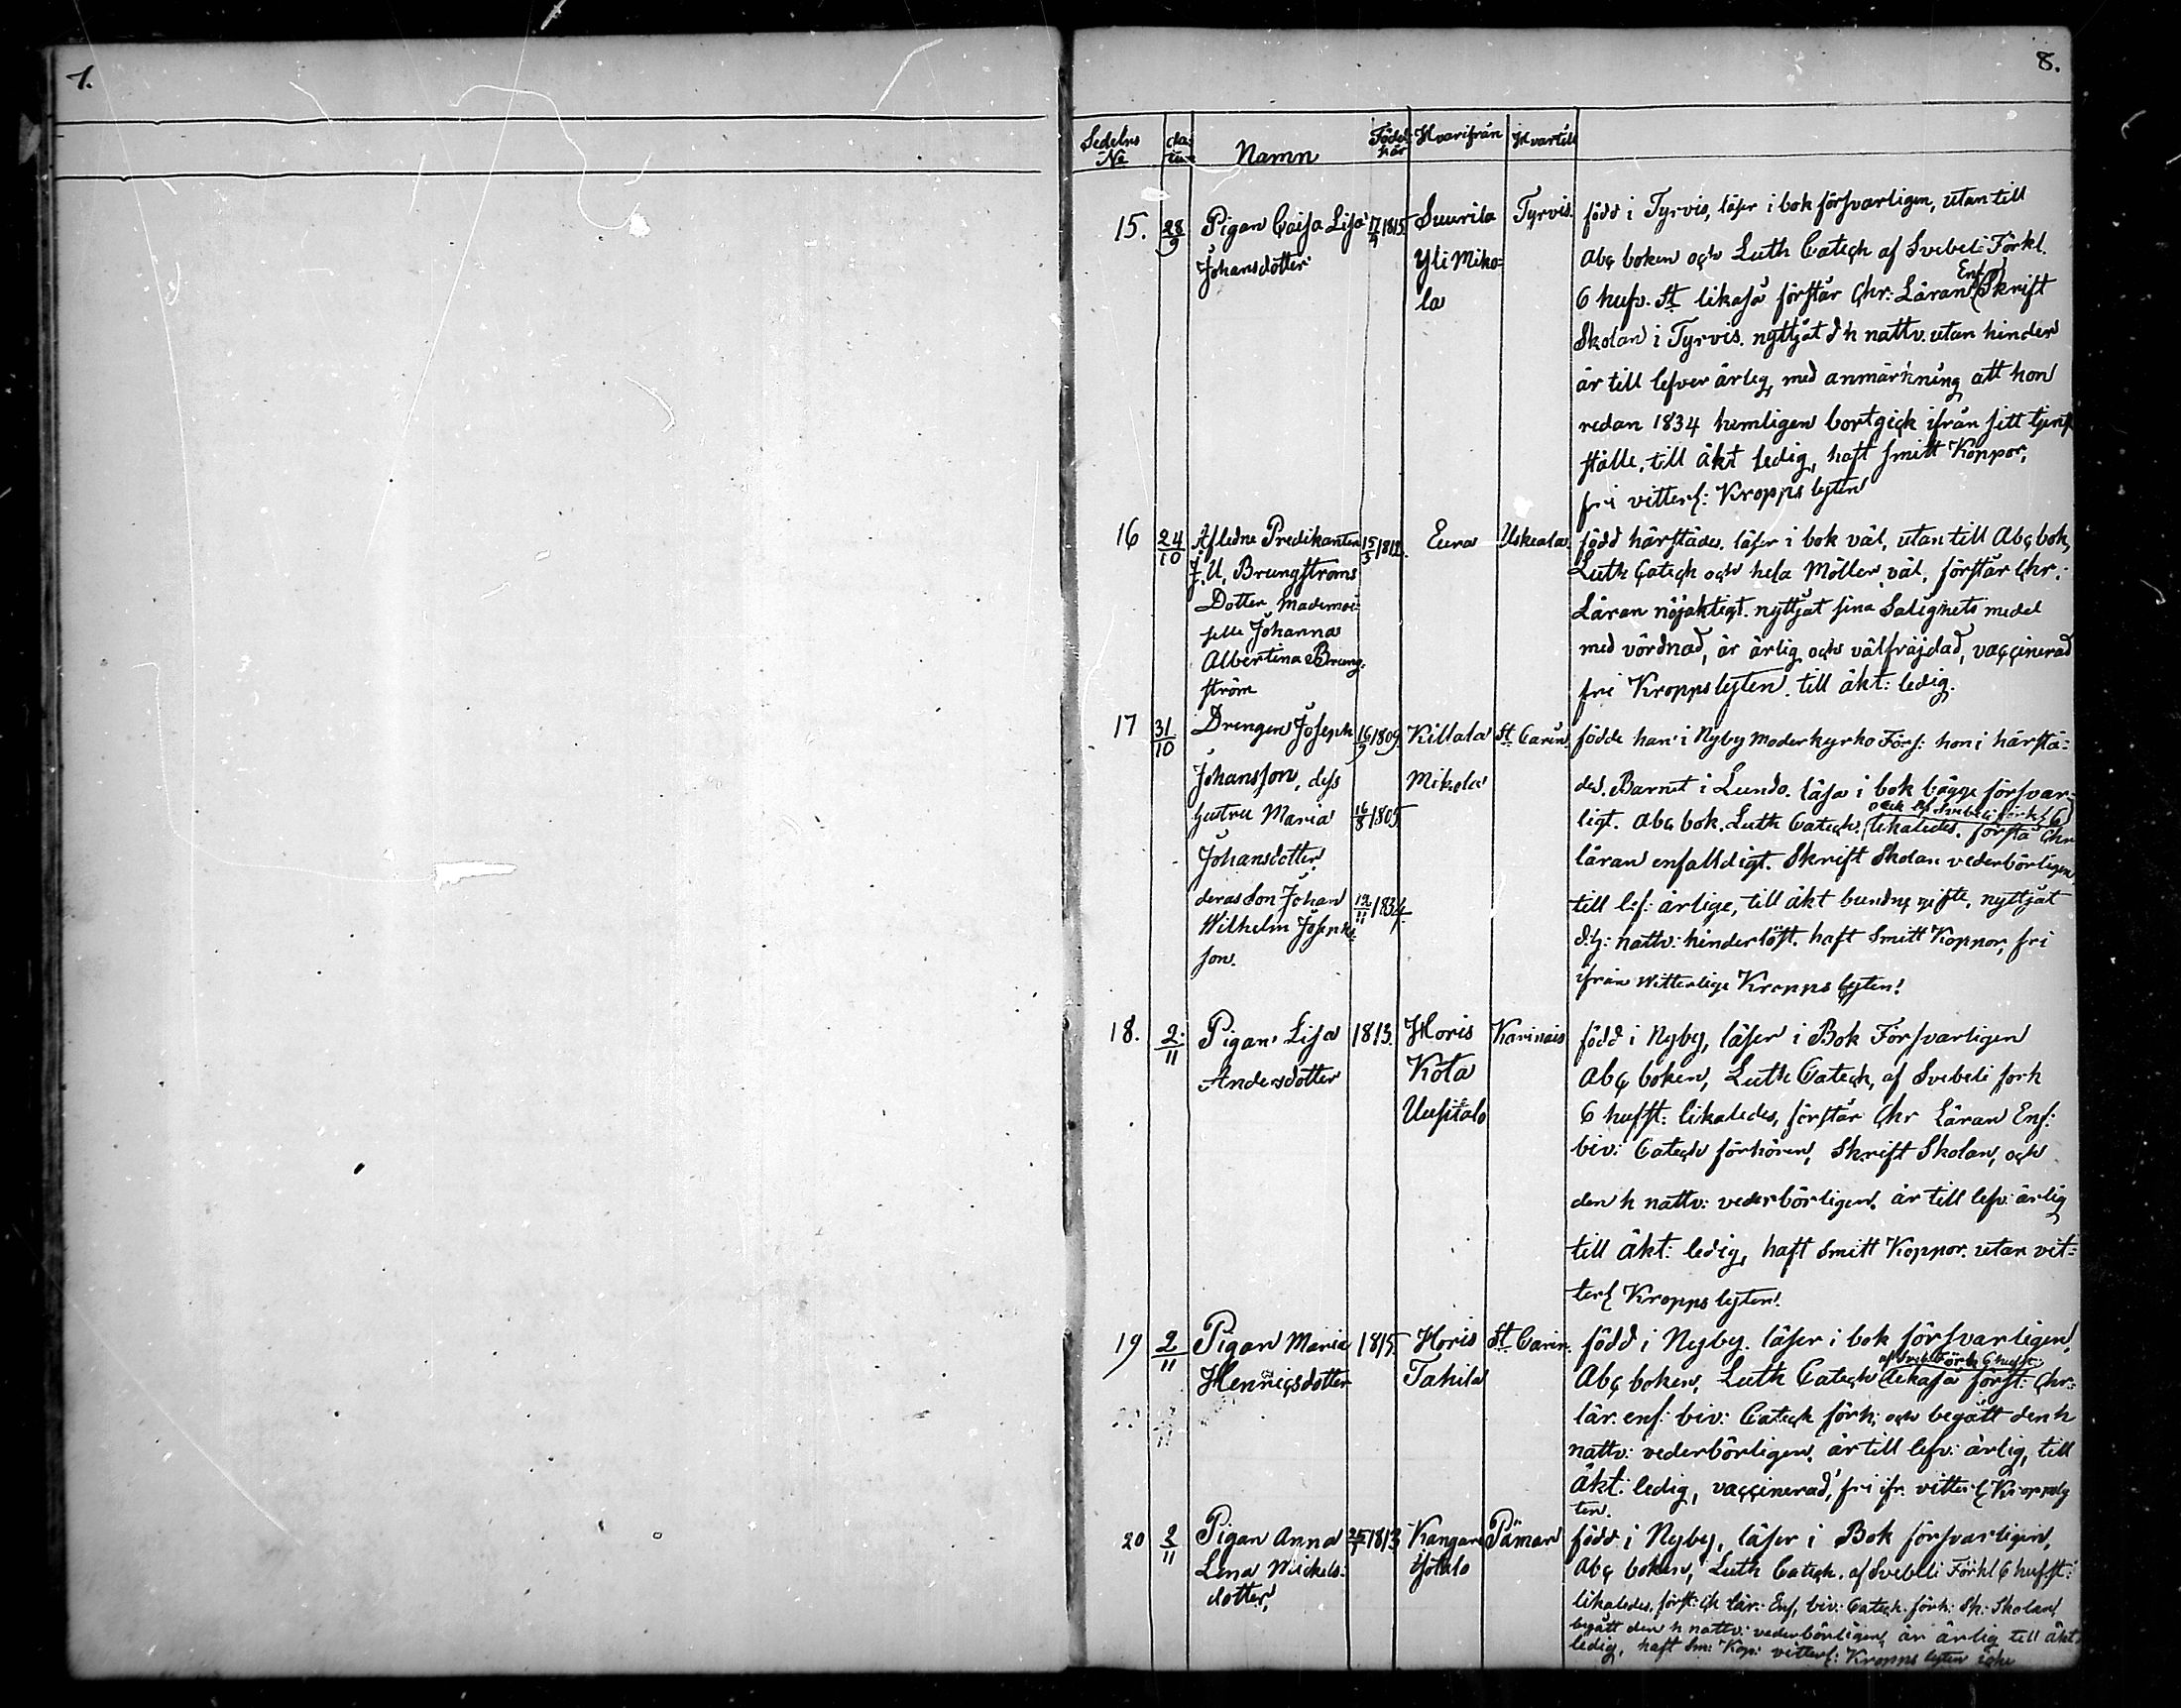 7.
8.
Sedelns No datu Namn Födel: når Hvarifrån Hvartill
15. 28/9 Pigan Caisa Lisa 17/4 1815. Suurila Tyrvis. född i Tyrvis, läser i bok försvarligen, utan till
Johansdotter Yli Miko= Abc boken och Luth Catech af Svebeli Förkl.
la 6 hufv. St likaså förstår Chr: Läran Enf Skrift
Skolan i Tyrvis. nyttjat d h nattv. utan hinder
är till lefver ärlig, med anmärkning att hon
redan 1834 hemligen bortgick ifrån sitt tjenst
ställe, till äkt ledig, haft smitt Koppor,
fri vitterl: Kropps lyten
16 24/10 Afledne Predikanten 15/5 Eura Uskeala född härstädes. läser i bok väl, utan till Abc bok,
J. U. Brungströms Luth Catech och hela Möller väl, förstår Chr:
Dotter Mademoi Läran nöjaktigt. nyttjat sina Salighets medel
selle Johanna
Albertina Brung- med vördnad, är ärlig och välfräjdad, vaccinerad
ström fri Kropps lyten. till äkt: ledig.
17 31/10 Drengen Joseph 16/9 1809. Killala St Carin födde han i Nyby Moderkyrko Förs: hon i härstä=
Johansson, dess Mikola des. Barnet i Lundo. läsa i bok bägge försvar=
hustru Maria 16/8 1805 ligt. Abc bok. Luth Catech. och af Svebeli förkl 6 likaledes. förstå Chr
Johansdotter läran enfalldigt. Skrift Skolan vederbörligen
deras Son Johan 12/11 1834. till lef: ärlige, till äkt bundne gifte, nyttjat
Wilhelm Josephs d:h: nattv: hinderlöst. haft Smitt Koppor, fri
son. ifrån Witterlige Kropps lyten!
18. 2/11 Pigan Lisa 1813. Horis Karinais född i Nyby, läser i Bok Försvarligen
Andersdotter Kota Abc boken, Luth Catech, af Svebeli forh
Uusitalo 6 hufst: likaledes, förstår Chr Läran Enf:
biv: Catech förhören, Skrift Skolan, och
den h nattv: vederbörligen. är till lefv: ärlig
till äkt: ledig, haft Smitt Koppor. utan vit=
terl Kropps lyten!
19 2/11 Pigan Maria 1815. Horis St Carin. född i Nyby. läser i bok försvarligen,
Henricsdotter Tahila Abc boken, Luth Catech af Sveb Förk 6 hufst: likaså först: Chr:
lär: enf: biv: Catech förh: och begått den h
nattv: vederbörligen. är till lefv: ärlig, till
äkt: ledig, vaccinerad, fri ifr. vitterl Kropply
ten.
20 2/11 Pigan Anna 25/1 1813 Kangare Pämar född i Nyby, läser i Bok försvarligen,
Lena Mickels= isotalo Abc boken, Luth Catech. af Svebeli Förkl 6 hufst:
dotter, likaledes, först: Ch lär: Enf, biv: Catech. förh: Sk: Skolan
begått den h nattv: vederbörligen, är ärlig till äkt:
ledig, haft Sm: Kop: vitterl: Kropps lyten icke